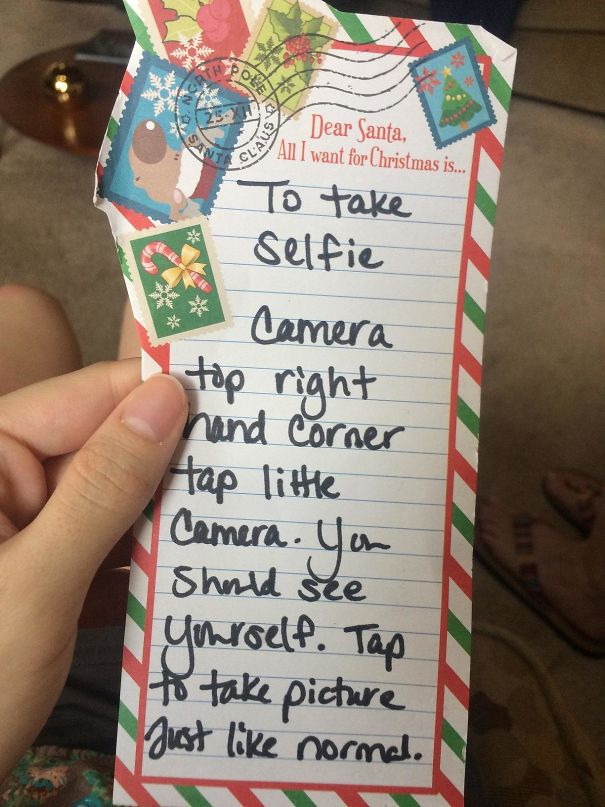 NORTH POLE
25 XII
SANTA CLAUS
Dear Santa,
All I want for Christmas is...
To take
Selfie
Camera
top right
hand Corner
tap little
Camera. You
Should see
Yourself. Tap
to take picture
Just like normal.